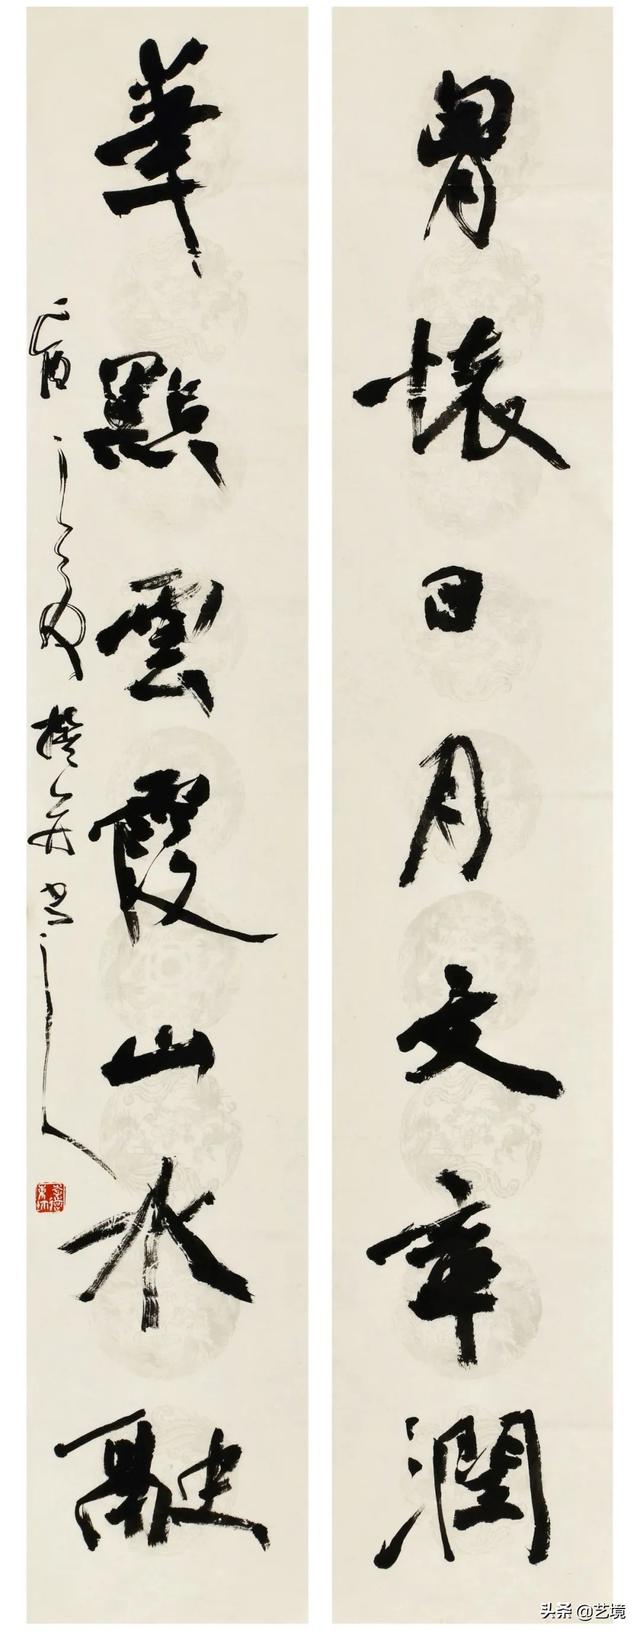 胷懷日月文章潤
筆點雲霞山水融
撰并書
头条 @艺境